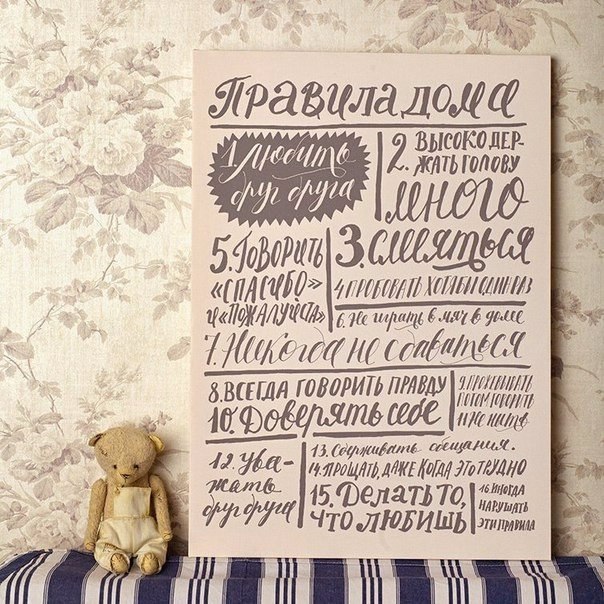 Правила дома
1. Любить
друг друга
2. Высоко дер-
жать голову
много
3. смеяться
4. пробовать хотя бы один раз
5. Говорить
«спасибо»
и «пожалуйста»
6. Не играть в мяч в доме
7. Никогда не сдаваться
8. Всегда говорить правду
9. Прожевывать,
потом говорить
10. Доверять себе
11. Не ныть
12. Ува-
жать
друг друга
13. Сдерживать обещания.
14. Прощать, даже когда это трудно
15. Делать то,
что любишь
16. Иногда
нарушать
эти правила